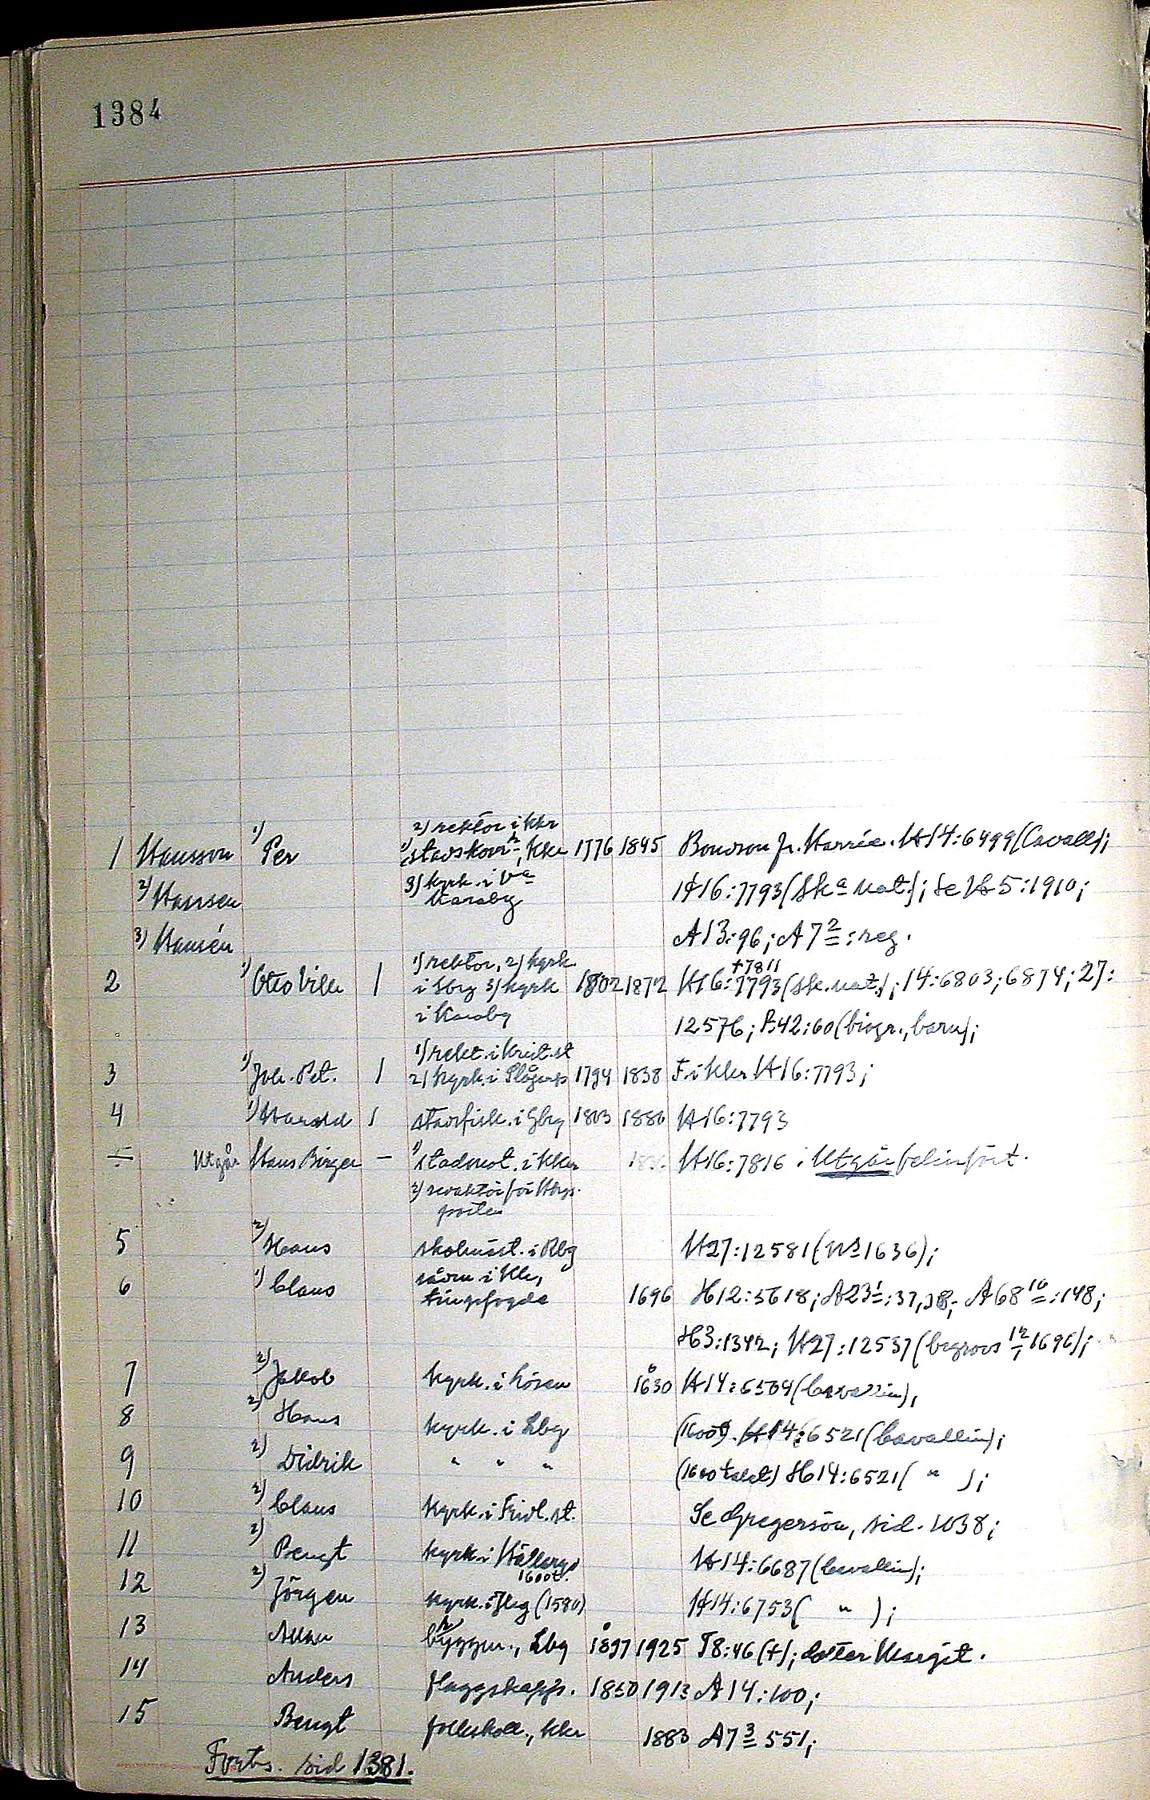 1384
1) 2) rektor i Kkr
1 Hansson Per 1) stadskom, Kkr 1776 1845 Bondson fr. Harrie. H14:6499 (Cavall);
2) Hansen 3) kyrk. i Va Karaby H16:7793 (Ska nat.); Se H5:1910;
3) Hansén A13:96; A7 2:reg.
1) rektor, 2) kyrk +7811
2 1) Otto Vilh 1 i Gbg 3) kyrk 1802 1872 H16:7793 (Sk. nat.); 14:6803; 6874; 27:
i Karaby 12576; B42:60 (biogr., barn);
1) rekt. i Krist.st
3 1) Joh. Pet. 1 2) kyrk. i 1794 1838 F i Kkr H16:7793;
4 1) Harald 1 stadsfisk. i Gbg 1803 1880 H16:7793
÷ Utgår Hans Birger - 1) stadsnot. i Kkr H16:7816 i Utgår felinfört.
2) redaktör för
posten
5 2) Hans skolmäst. i Rbg H27:12581 (No 1636);
6 1) Claus rådm i
tingsfogde 1696 H12:5618; A23 1:37,38; A68 10:148;
H3:1342; H27:12537 (begravs 12/1 1696);
7 2) Jakob kyrk. i Lösen 1630 H14:6504 (Cavallin),
8 2) Hans kyrk. i Lbg (1600t). H14:6521 (Cavallin);
9 2) Didrik " " " (1600talet) H14:6521 ( " );
10 2) Claus kyrk. i Fridl.st. Se Gregersön, sid. 1038;
11 2) Bengt kyrk. i 1600t. H14:6687 (Cavallin);
12 2) Jörgen kyrk. i (1580) H14:6753 ( " );
13 Allan byggm., Lbg 1897 1925 T8:46 (+); dotter Margit.
14 Anders flaggskepps. 1850 1913 A14:100;
15 Bengt folkskoll., Kkr 1883 A7 3 551;
Forts. sid 1381.